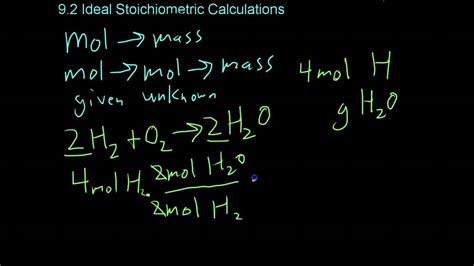 9.2 Ideal Stoichiometric Calculations
mol → mass
mol → mol → mass
given unknown
4 mol H
g H₂O
2H₂ + O₂ → 2H₂O
4 mol H₂ · 2mol H₂O
2mol H₂